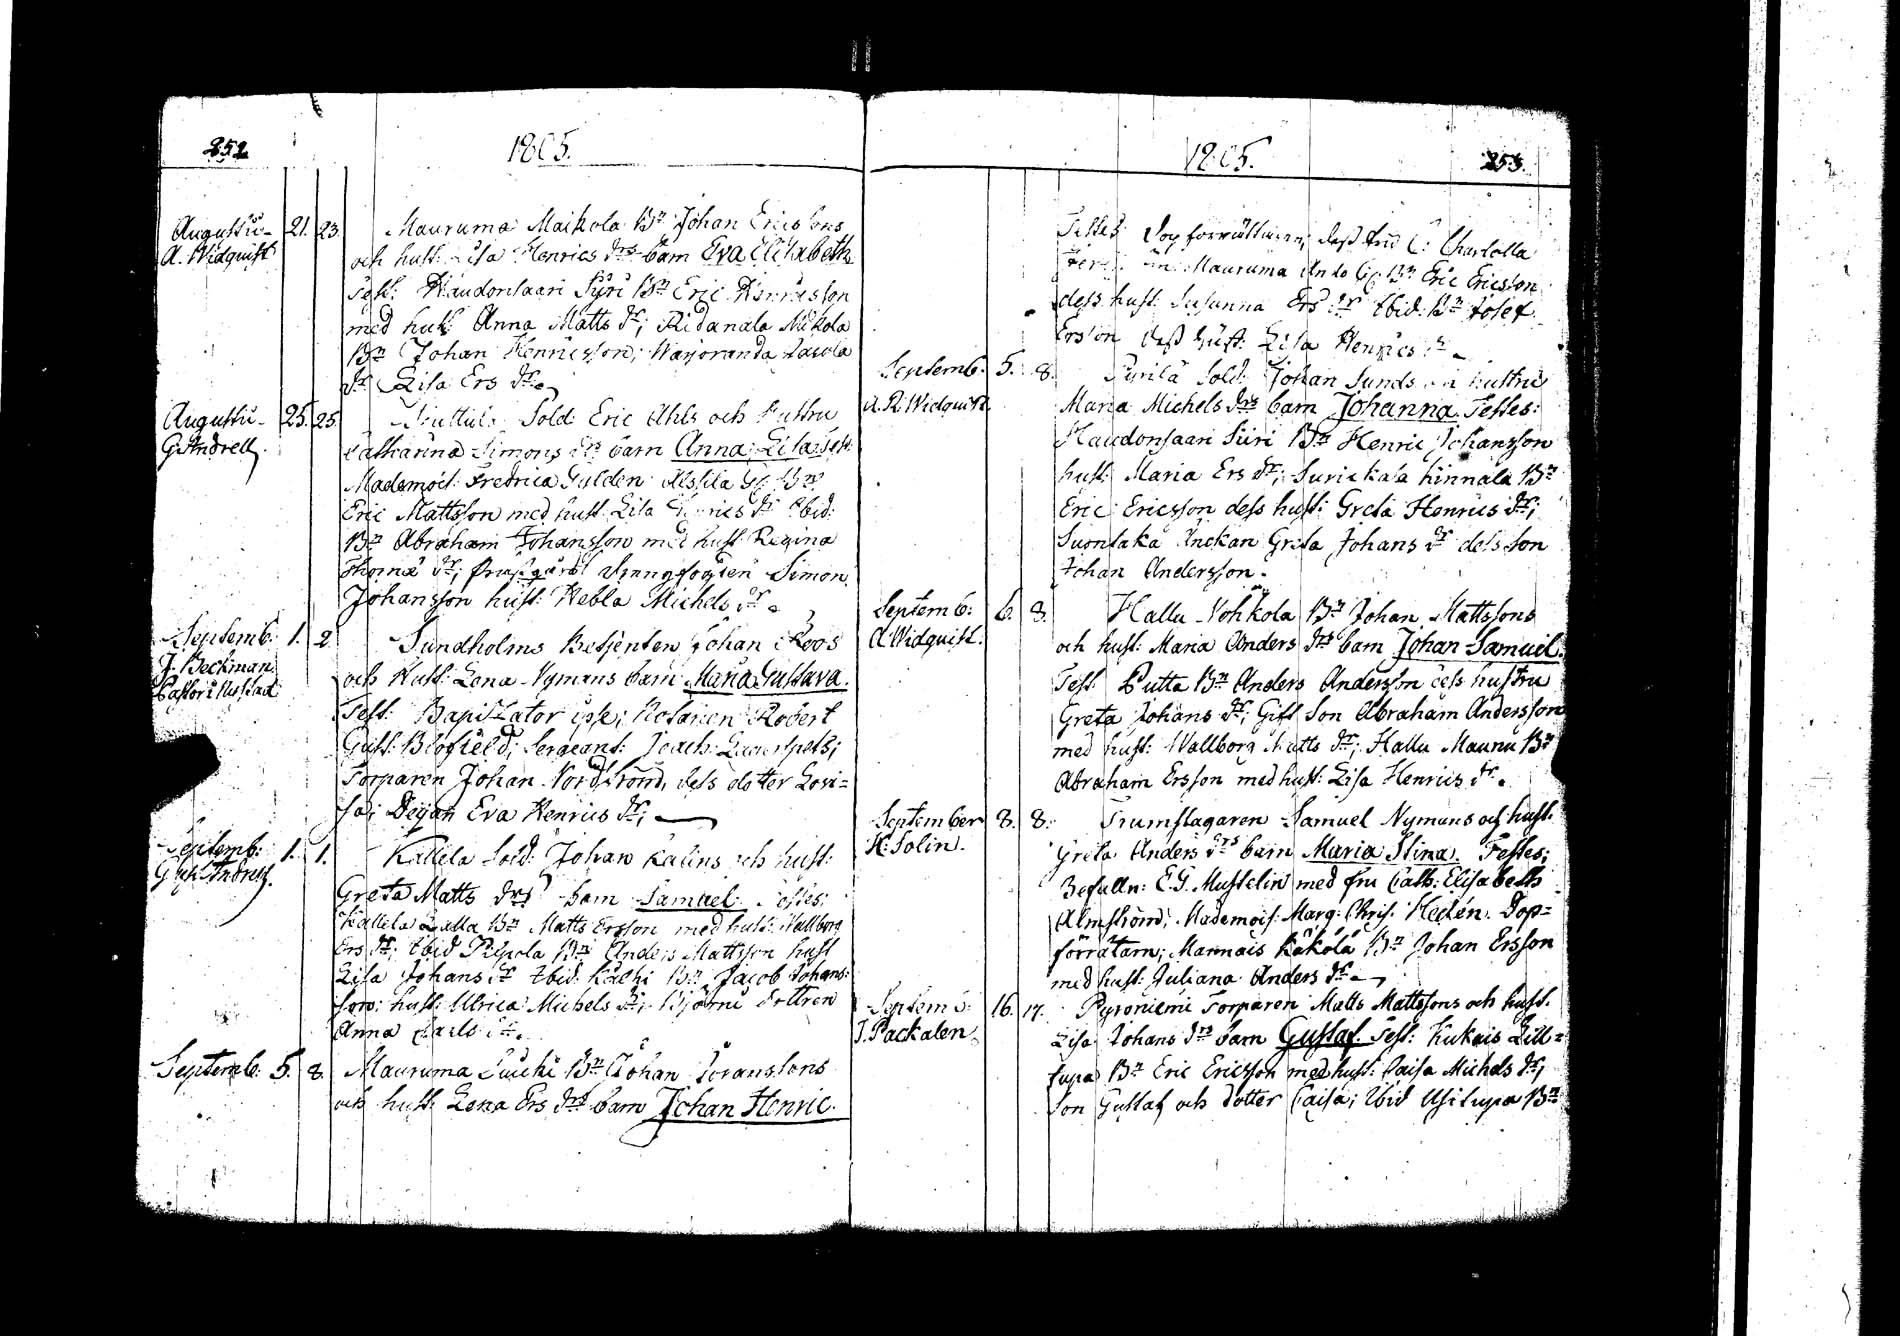 252
1805.
Augusti
A. Widquist
21. 23.
Mauruma Maikola Bn Johan Ericssons
och hust: Lisa Henrics drs barn Eva Elisabeth
Test: Haudonsaari Syri Bn Eric Henricsson
med hust: Anna Matts dr; Ridanala Mikola
Bn Johan Henricsson; Warjoranda Jacola
dr Lisa Ers dr.
Augusti
G. Andrell.
25. 25.
Sold: Eric Ahls och hustru
Catharina Simons drs barn Anna Lisa. Test:
Mademois: Fredrica Gulden
Eric Mattsson med hust: Lisa Henrics dr Ibid:
Bn Abraham Johansson med hust: Regina
Thomæ dr; Simon
Johansson hust: Hebla Michels dr.
Septemb: 1. 2
J. Beckman
Pastor i Nystad
Sundholms Betjenten Johan Roos
och Hust: Lena Nymans barn Maria Gustava.
Test: Baptizator ipse; Notarien Robert
Gust: Blofield; Sergeant: Joach:
Torparen Johan Nordström, dess dotter Lovi=
sa; Deyan Eva Henrics dr;
Septemb: 1. 1.
Gust: Andrell.
Kallela Sold: Johan Kalins och hust:
Greta Matts drs barn Samuel. Testes:
Kallela Lalla Bn Matts Ersson med hust: Wallborg
Ers dr; Ibid Pripola Bn Anders Mattsson hust
Lisa Johans dr Ibid: Kälhi Bn Jacob Johans=
son: hust: Ulrica Michels dr; Björni dottren
Anna Carls dr.
Septemb: 5. 8.
Mauruma Bn Johan Joranssons
och hust: Lena Ers drs barn Johan Henric.
1805.
253.
Testes: Dop förrättaren; dess fru C: Charlotta
Mauruma Bn Eric Ericsson
dess hust: Susanna Ers dr Ibid: Bn Josef
Ersson dess hust: Lisa Henrics dr
Septemb: 5. 8.
A. R. Widquist
Sold: Johan Sunds och hustru
Maria Michels drs barn Johanna. Testes:
Haudonsaari Siiri Bn Henric Johansson
hust: Maria Ers dr; Surickala Kinnala Bn
Eric Ericsson dess hust: Greta Henrics dr;
Suontaka Änckan Greta Johans dr dess son
Johan Andersson.
Septemb: 6. 8.
A. Widquist.
Hallu Nohkola Bn Johan Mattssons
och hust: Maria Anders drs barn Johan Samuel.
Test: Putta Bn Anders Andersson dess hustru
Greta Johans dr; Gift Son Abraham Andersson
med hust: Wallborg Matts dr; Hallu Maunu Bn
Abraham Ersson med hust: Lisa Henrics dr.
September 8. 8.
K: Solin.
Trumslagaren Samuel Nymans och hust:
Greta Anders drs barn Maria Stina. Testes;
Befalln: E. G. Musselin med fru Cath: Elisabeth
Almström; Mademois: Marg: Chris: Hedén. Dop=
förrätarn; Mannais Käkölä Bn Johan Ersson
med hust: Juliana Anders dr.
Septemb: 16. 17.
J. Packalen.
Pyroniemi Torparen Matts Mattssons och hust.
Lisa Johans drs barn Gustaf. Test: Kukais Lill=
tupa Bn Eric Ericsson med hust: Caisa Michels dr;
Son Gustaf och dotter Caisa; Ibid Usitupa Bn